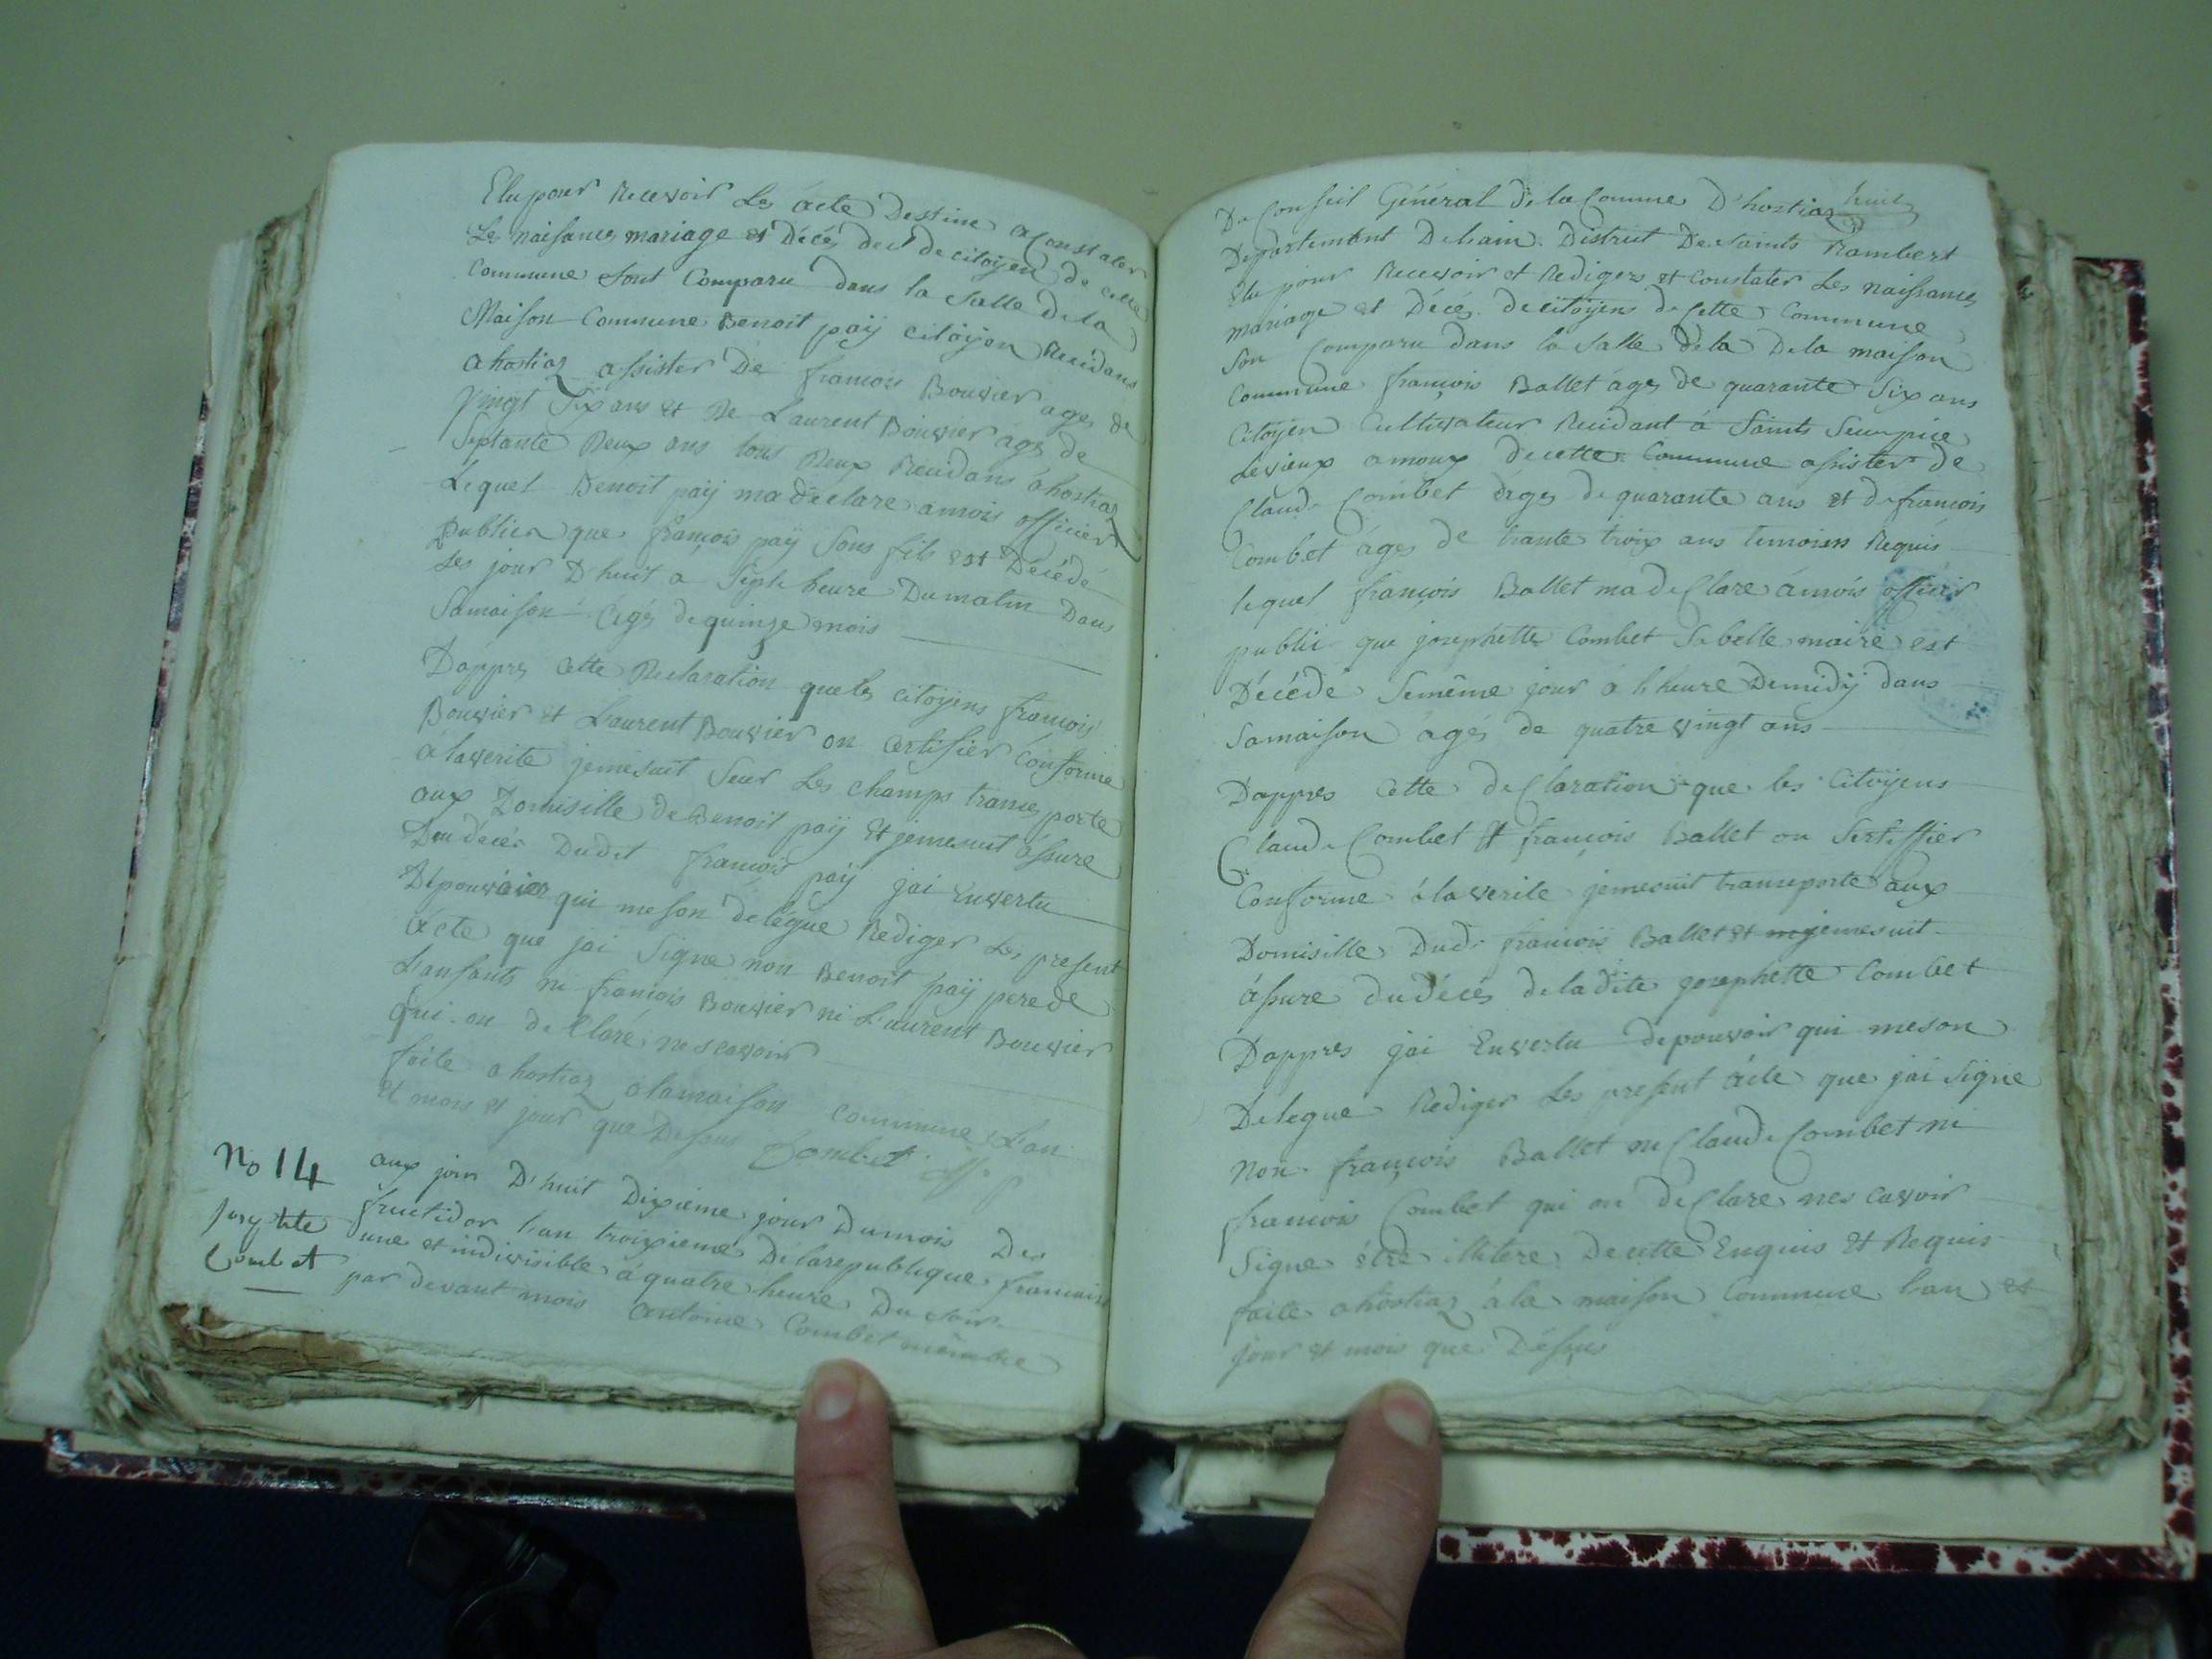 Elu pour Recevoir Les acte Destine a Constater
Le naisances mariage et Décés de citoyen de cette
Commune Sont Comparu dans la Salle de la
Maison Commune Benoit paÿ citoÿen Residans
a hostiaz assister De francois Bouvier ages de
Vingt Six ans et De Laurent Bouvier àgés de
Septante Deux ans tous Deux Residans àhostiaz
Lequel Benoit paÿ ma déclare amois officier
Publica que francois paÿ Sons fils est Décédé
Les jour D'huit a Sept heure Dumatin Dans
Samaison àgés de quinze mois
Dappres cette Declaration que les citoÿens francois
Bouvier et Laurent Bouvier on certifier Conforme
à laverite jemesuit Seur Les champs transporte
aux Domisille de Benoit paÿ Et jemesuit assure
Dudécés Dudit francois paÿ jai Enverlu
Depouvoier qui me son delégue Rediger Les present
acte que jai Signe non Benoit paÿ pere de
Lanfants ni francois Bouvier ni Laurent Bouvier
qui on de Claré nescavoir
faite a hostiaz alamaison commune Lan
Et mois et jour que Dessus Combet
No 14
Josephte
Combet
aux jour D'huit Dixieme jour Dumois De
fructidor lan troixieme Délarepublique francaise
une et indivisible à quatre heure Du Soir
par devant mois antoine Combet mêmbre
huit
Du Conseil Général de la Comune D'hostiaz
Departemant Delain District De Saints Rambert
Elu pour Recevoir et Rediger et Constater Les naissances
mariage et Décés de citoÿens de Cette Commune
Son Comparu dans la Salle dela Dela maison
Commune francois Ballet àges de quarante Six ans
Citoÿen Cultivateur Residant à Saints Seurpice
Levieux amoux decette Commune assister de
Claude Combet àges de quarante ans et de francois
Combet àges de trante troix ans temoins Requis
lequel francois Ballet ma de Clare à mois officier
public que josephette Combet Sebelle maire est
Décédé Semême jour à lheure Demidÿ dans
Samaison àgés de quatre vingt ans
Dappres cette de Claration que les Citoÿens
Claude Combet Et francois Ballet on Sertiffier
Conforme à la verite jemesuit transporte aux
Domisille Dud francois Ballet et jemesuit
àssure du décés deladite josephette Combet
Dappres jai Enverlu depouvoir qui meson
Delegue Rediger Les present àcte que jai Signe
Non francois Ballet ni Claude Combet ni
francois Combet qui on de Clare nes cavoir
Signe être illitere Decette Enquis Et Requis
faite ahostiaz à la maison Commune lan et
jour et mois que Dessus